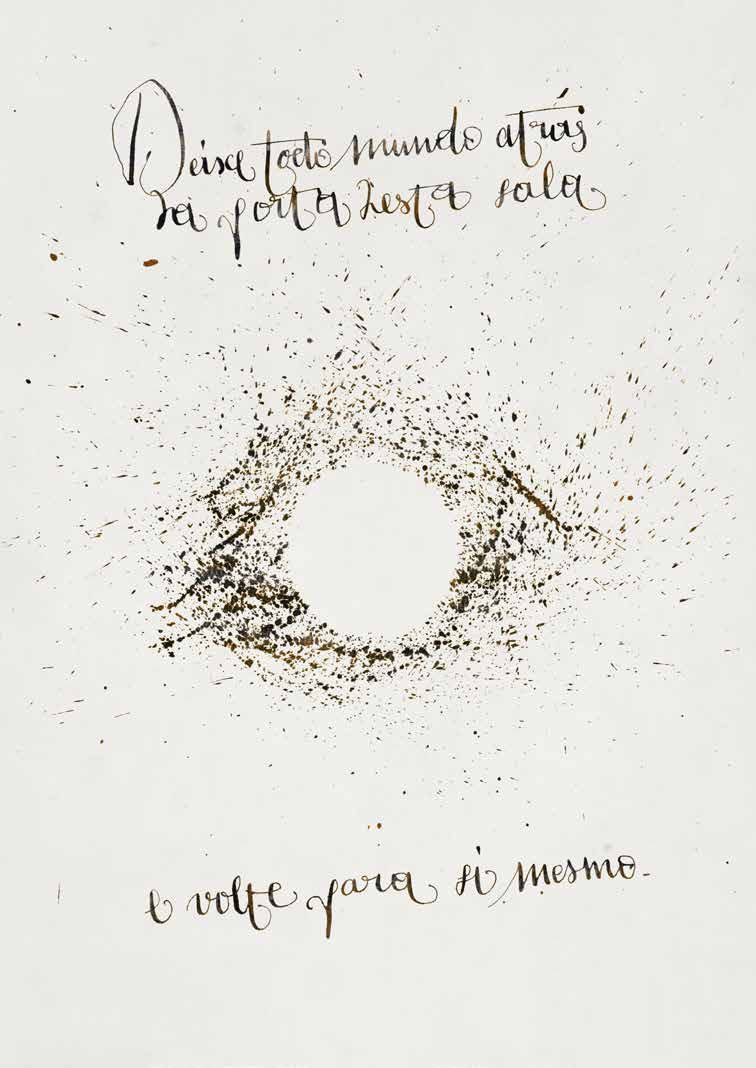 Deixe todo mundo atrás
da porta desta sala
e volte para si mesmo.